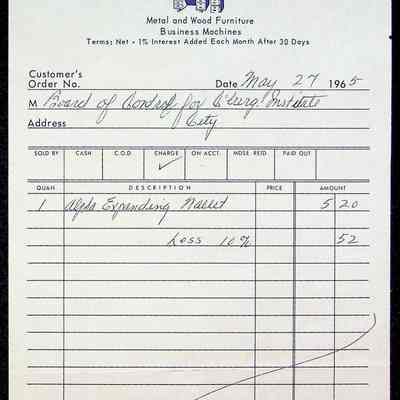 Metal and Wood Furniture
Business Machines
Terms: Net - 1% Interest Added Each Month After 30 Days
Customer's
Order No. Date May 27 1965
M Board of Control for C'burg. Institute
Address City
SOLD BY CASH C.O.D. CHARGE ON ACCT. MDSE. RETD. PAID OUT
QUAN. DESCRIPTION PRICE AMOUNT
1 Alpha Expanding Wallet 5 20
Less 10% 52